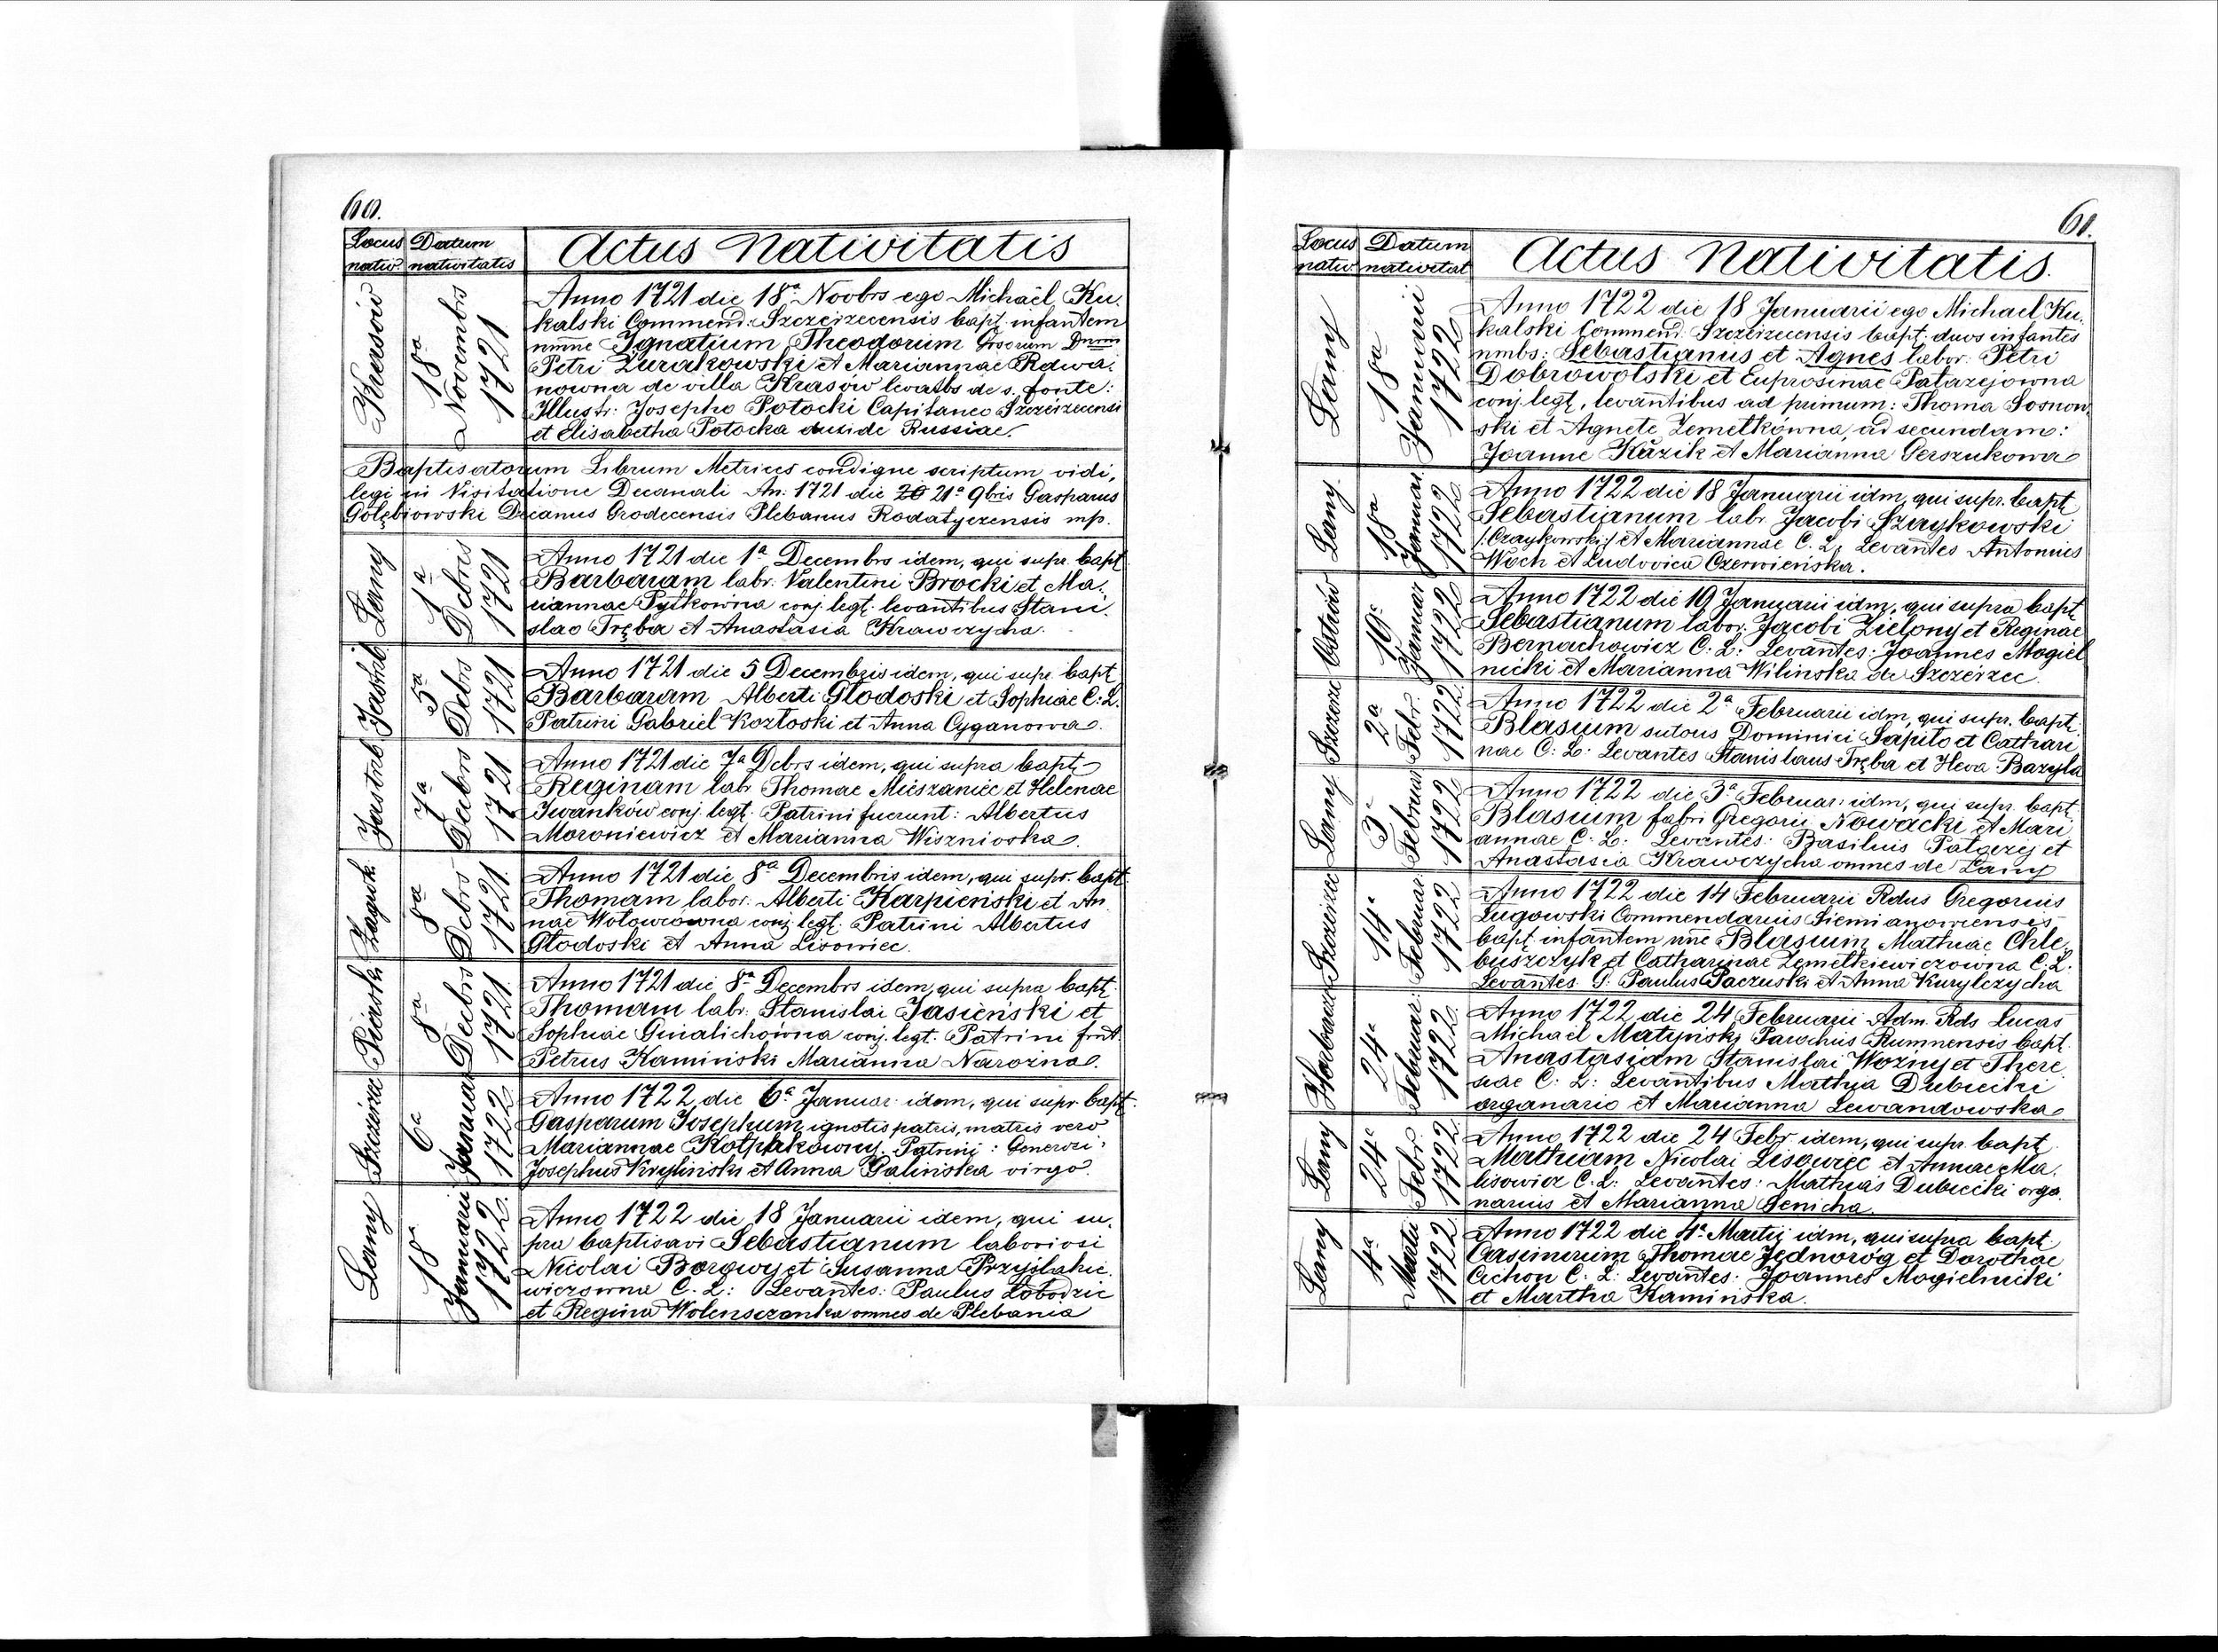 60.
Locus nativ.
Datum nativitatis
Actus Nativitatis
Krasów
18ª Novembris 1721
Anno 1721 die 18ª Novbrs ego Michaël Ku-
kalski Commend: Szczerzecensis bapt. infantem
nmne Ignatium Theodorum Gsorum Dnorum
Petri Żurakowski et Mariannae Radwa-
nowna de villa Krasów levatbs de s. fonte:
Illustr: Josepho Potocki Capitaneo Szczerzecensi
et Elisabetha Potocka ducide Russiae.
Baptisatorum Librum Metrices condigne scriptum vidi,
legi in Visitatione Decanali An: 1721 die 20 21ª 9bris Gasparus
Gołębiowski Decanus Grodecensis Plebanus Rodatyczensis mp.
Łany
1ª Dcbris 1721
Anno 1721 die 1ª Decembrs idem, qui supr. bapt
Barbaram labr. Valentini Brocki et Ma-
riannae Pytkowna conj. legt. levantibus Stani-
slao Tręba et Anastasia Krawczycha.
Jastrib
5ª Dcbrs 1721
Anno 1721 die 5 Decembris idem, qui supr. bapt
Barbaram Alberti Głodoski et Sophiae C. L.
Patrini Gabriel Kozłoski et Anna Cyganowa.
Jastrib
7ª Decbrs 1721
Anno 1721 die 7ª Dcbrs idem, qui supra bapt.
Reginam labr Thomae Mieszaniec et Helenae
Iwanków conj. legt. Patrini fuerunt: Albertus
Moroniewicz et Marianna Wisznioska.
Zagrık.
8ª Dcbrs 1721
Anno 1721 die 8ª Decembris idem, qui supr. bapt.
Thomam labor. Alberti Karpieński et An-
nae Wołowcowna conj. legt. Patrini Albertus
Głodoski et Anna Liwowiec.
Piaski
8ª Decbrs 1721
Anno 1721 die 8ª Decembrs idem, qui supra bapt.
Thomam labr. Stanislai Jasieński et
Sophiae Gnialichówna conj. legt. Patrini frnt.
Petrus Kamiński Marianna Narożna.
Szczérec
6ª Januar 1722
Anno 1722 die 6ª Januar. idem, qui supr. bapt.
Gasparum Josephum ignotis patris, matris vero
Mariannae Kołpakówny. Patrini: Generosi:
Josephus Kryliński et Anna Galińska virgo.
Łany
18ª Januarii 1722.
Anno 1722 die 18 Januarii idem, qui su-
pra baptisavi Sebastianum laboriosi
Nicolai Borowy et Susanna Przyjilakie-
wiczowna C. L: Levantes: Paulus Łobodzic
et Regina Wolensczanka omnes de Plebania
61.
Locus nativ.
Datum nativitat
Actus Nativitatis.
Łany
18ª Januarii 1722
Anno 1722 die 18 Januarii ego Michael Ku-
kalski Commend. Szczerzecensis bapt. duos infantes
nmbs: Sebastianus et Agnes labor. Petri
Dobrowolski et Euprosinae Patarzejowna
conj. legt, levantibus ad primum: Thoma Sosnow-
ski et Agnete Zemełkówna, ad secundam:
Joanne Kázik et Marianna Gerszukowa
Łany
18ª Januar. 1722
Anno 1722 die 18 Januarii idm, qui supr. bapt.
Sebastianum labr. Jacobi Szaykowski
/:Czaykowski:/ et Mariannae C. L. Levantes Antonius
Woch et Ludovica Czerwieńska.
Ostrów
19ª Januar 1722
Anno 1722 die 19 Januarii idm, qui supra bapt.
Sebastianum labor. Jacobi Zielony et Reginae
Bernachowicz C. L: Levantes: Joannes Mogiel
nicki et Marianna Wilinska de Szczérzec.
Szczerec
2ª Febr. 1722
Anno 1722 die 2ª Februarii idm, qui supr. bapt.
Blasium sutoris Dominici Sapito et Cathari
nae C: L: Levantes Stanislaus Tręba et Heva Bazyla
Łany
3ª Februar 1722
Anno 1722 die 3ª Februar: idm, qui supr. bapt.
Blasium fabri Gregorii Nowacki et Mari
annae C. L: Levantes: Basilius Patarzej et
Anastasia Krawczycha omnes de Łany
Szczerzec
14ª Februar. 1722
Anno 1722 die 14 Februarii Rdus Gregorius
Ługowski Commendarius Siemianowiensis
bapt. infantem nne Blasium Mathiae Chle-
buszczyk et Catharinae Zemełkiewiczowna C. L.
Levantes G. Paulus Paczuski et Anna Kurylczycha
Horbacze
24ª Februar: 1722
Anno 1722 die 24 Februarii Adm. Rds Lucas
Michael Matyiński Parochus Rumnensis bapt.
Anastasiam Stanislai Wozny et There
siae C: L: Levantibus Mathia Dubiecki
organario et Marianna Lewandowska
Łany
24ª Febr. 1722
Anno 1722 die 24 Febr. idem, qui supr. bapt.
Mathiam Nicolai Lisowiec et Annae Ma-
lisowicz C. L: Levantes: Mathias Dubiecki orga-
narius et Marianna Senicha.
Łany
4ª Martii 1722
Anno 1722 die 4ª Martij idm, qui supra bapt.
Casimirum Thomae Jednoróg et Dorothae
Cichon C. L: Levantes: Joannes Mogielnicki
et Martha Kamińska.